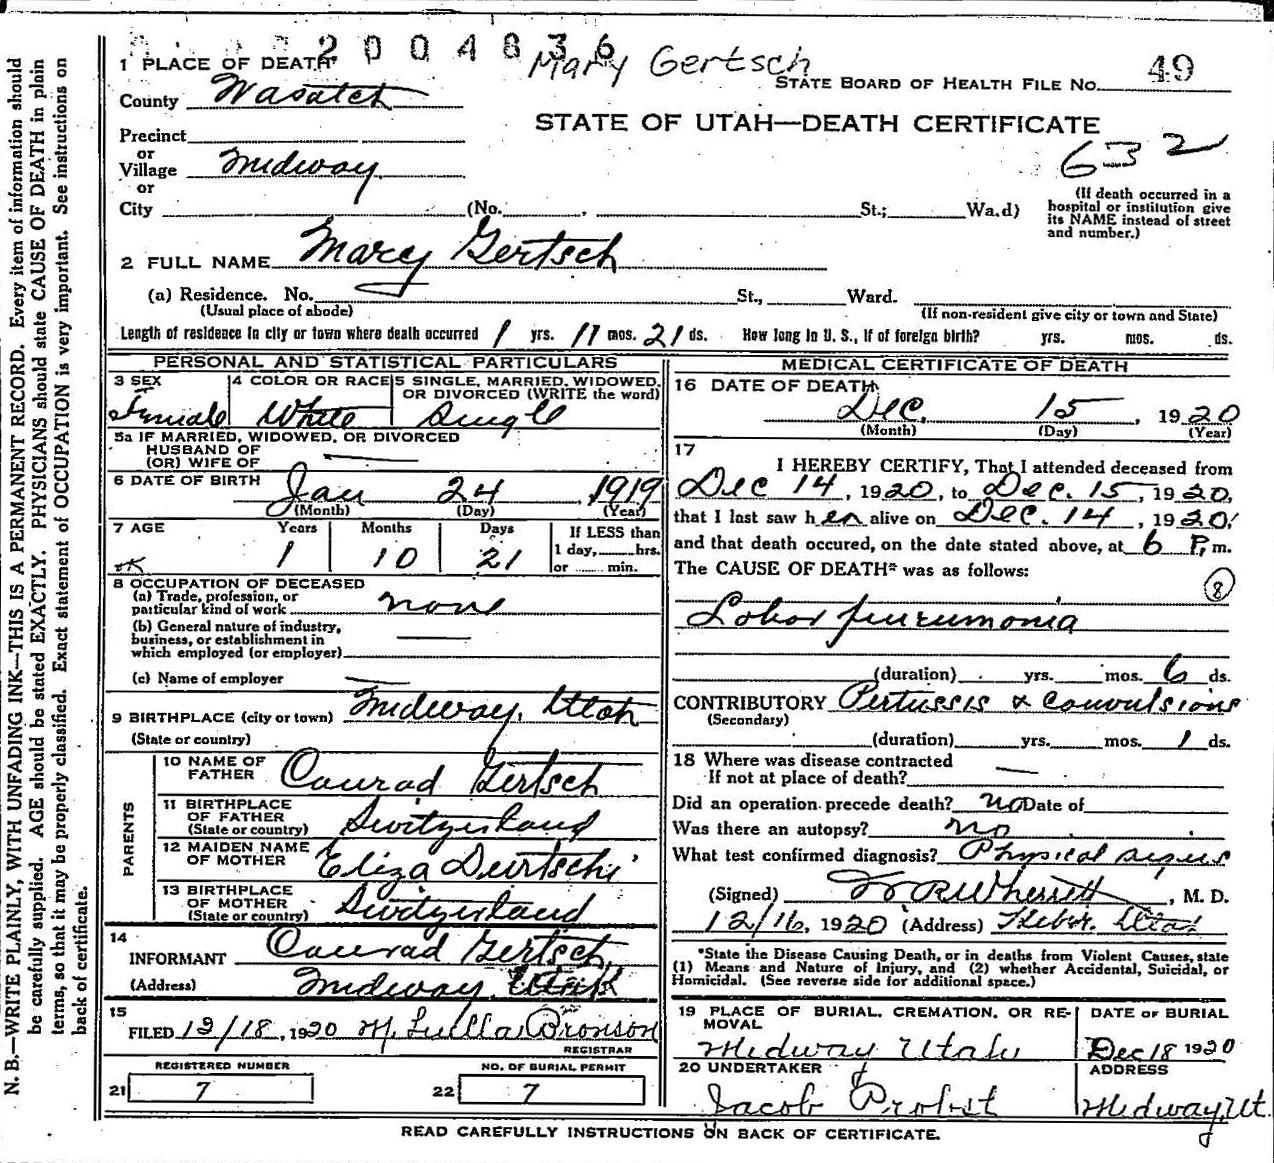 2004836
Mary Gertsch
1 PLACE OF DEATH
STATE BOARD OF HEALTH FILE No. 49
County Wasatch
STATE OF UTAH—DEATH CERTIFICATE
632
Precinct
or
Village Midway
or
City (No. , St.; Wa.d)
(If death occurred in a
hospital or institution give
its NAME instead of street
and number.)
2 FULL NAME Mary Gertsch
(a) Residence. No. St., Ward.
(Usual place of abode) (If non-resident give city or town and State)
Length of residence in city or town where death occurred 1 yrs. 11 mos. 21 ds. How long in U. S., if of foreign birth? yrs. mos. ds.
PERSONAL AND STATISTICAL PARTICULARS
3 SEX
Female
4 COLOR OR RACE
White
5 SINGLE, MARRIED, WIDOWED,
OR DIVORCED (WRITE the word)
Single
5a IF MARRIED, WIDOWED, OR DIVORCED
HUSBAND OF
(OR) WIFE OF
6 DATE OF BIRTH Jan 24, 1919
(Month) (Day) (Year)
7 AGE Years Months Days If LESS than
1 day, hrs.
or min.
ok 1 10 21
8 OCCUPATION OF DECEASED
(a) Trade, profession, or
particular kind of work none
(b) General nature of industry,
business, or establishment in
which employed (or employer)
(c) Name of employer
9 BIRTHPLACE (city or town) Midway, Utah
(State or country)
PARENTS
10 NAME OF
FATHER Conrad Gertsch
11 BIRTHPLACE
OF FATHER
(State or country) Switzerland
12 MAIDEN NAME
OF MOTHER Eliza Deirtschi
13 BIRTHPLACE
OF MOTHER
(State or country) Switzerland
14
INFORMANT Conrad Gertsch
(Address) Midway, Utah
15
FILED 12/18, 1920 M. Luella Bronson
REGISTRAR
REGISTERED NUMBER NO. OF BURIAL PERMIT
21 7 22 7
MEDICAL CERTIFICATE OF DEATH
16 DATE OF DEATH
Dec. 15, 1920
(Month) (Day) (Year)
17
I HEREBY CERTIFY, That I attended deceased from
Dec 14, 1920, to Dec. 15, 1920,
that I last saw her alive on Dec. 14, 1920,
and that death occured, on the date stated above, at 6 P. m.
The CAUSE OF DEATH* was as follows:
8
Lobar pneumonia
(duration) yrs. mos. 6 ds.
CONTRIBUTORY Pertussis & Convulsions
(Secondary)
(duration) yrs. mos. 1 ds.
18 Where was disease contracted
If not at place of death?
Did an operation precede death? no Date of
Was there an autopsy? no
What test confirmed diagnosis? Physical signs
(Signed) W R Wherritt, M. D.
12/16, 1920 (Address) Heber, Utah
*State the Disease Causing Death, or in deaths from Violent Causes, state
(1) Means and Nature of Injury, and (2) whether Accidental, Suicidal, or
Homicidal. (See reverse side for additional space.)
19 PLACE OF BURIAL, CREMATION, OR RE-
MOVAL
Midway Utah
DATE OF BURIAL
Dec 18 1920
20 UNDERTAKER
Jacob Probst
ADDRESS
Midway, Ut.
READ CAREFULLY INSTRUCTIONS ON BACK OF CERTIFICATE.
N. B.—WRITE PLAINLY, WITH UNFADING INK—THIS IS A PERMANENT RECORD. Every item of information should
be carefully supplied. AGE should be stated EXACTLY. PHYSICIANS should state CAUSE OF DEATH in plain
terms, so that it may be properly classified. Exact statement of OCCUPATION is very important. See instructions on
back of certificate.